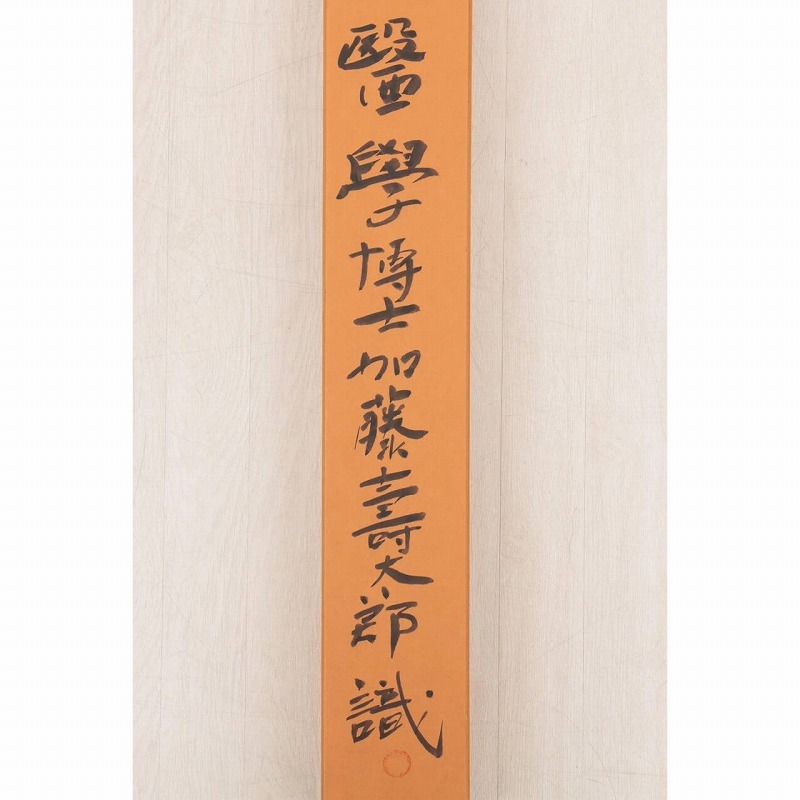 醫學博士加藤壽太郎識